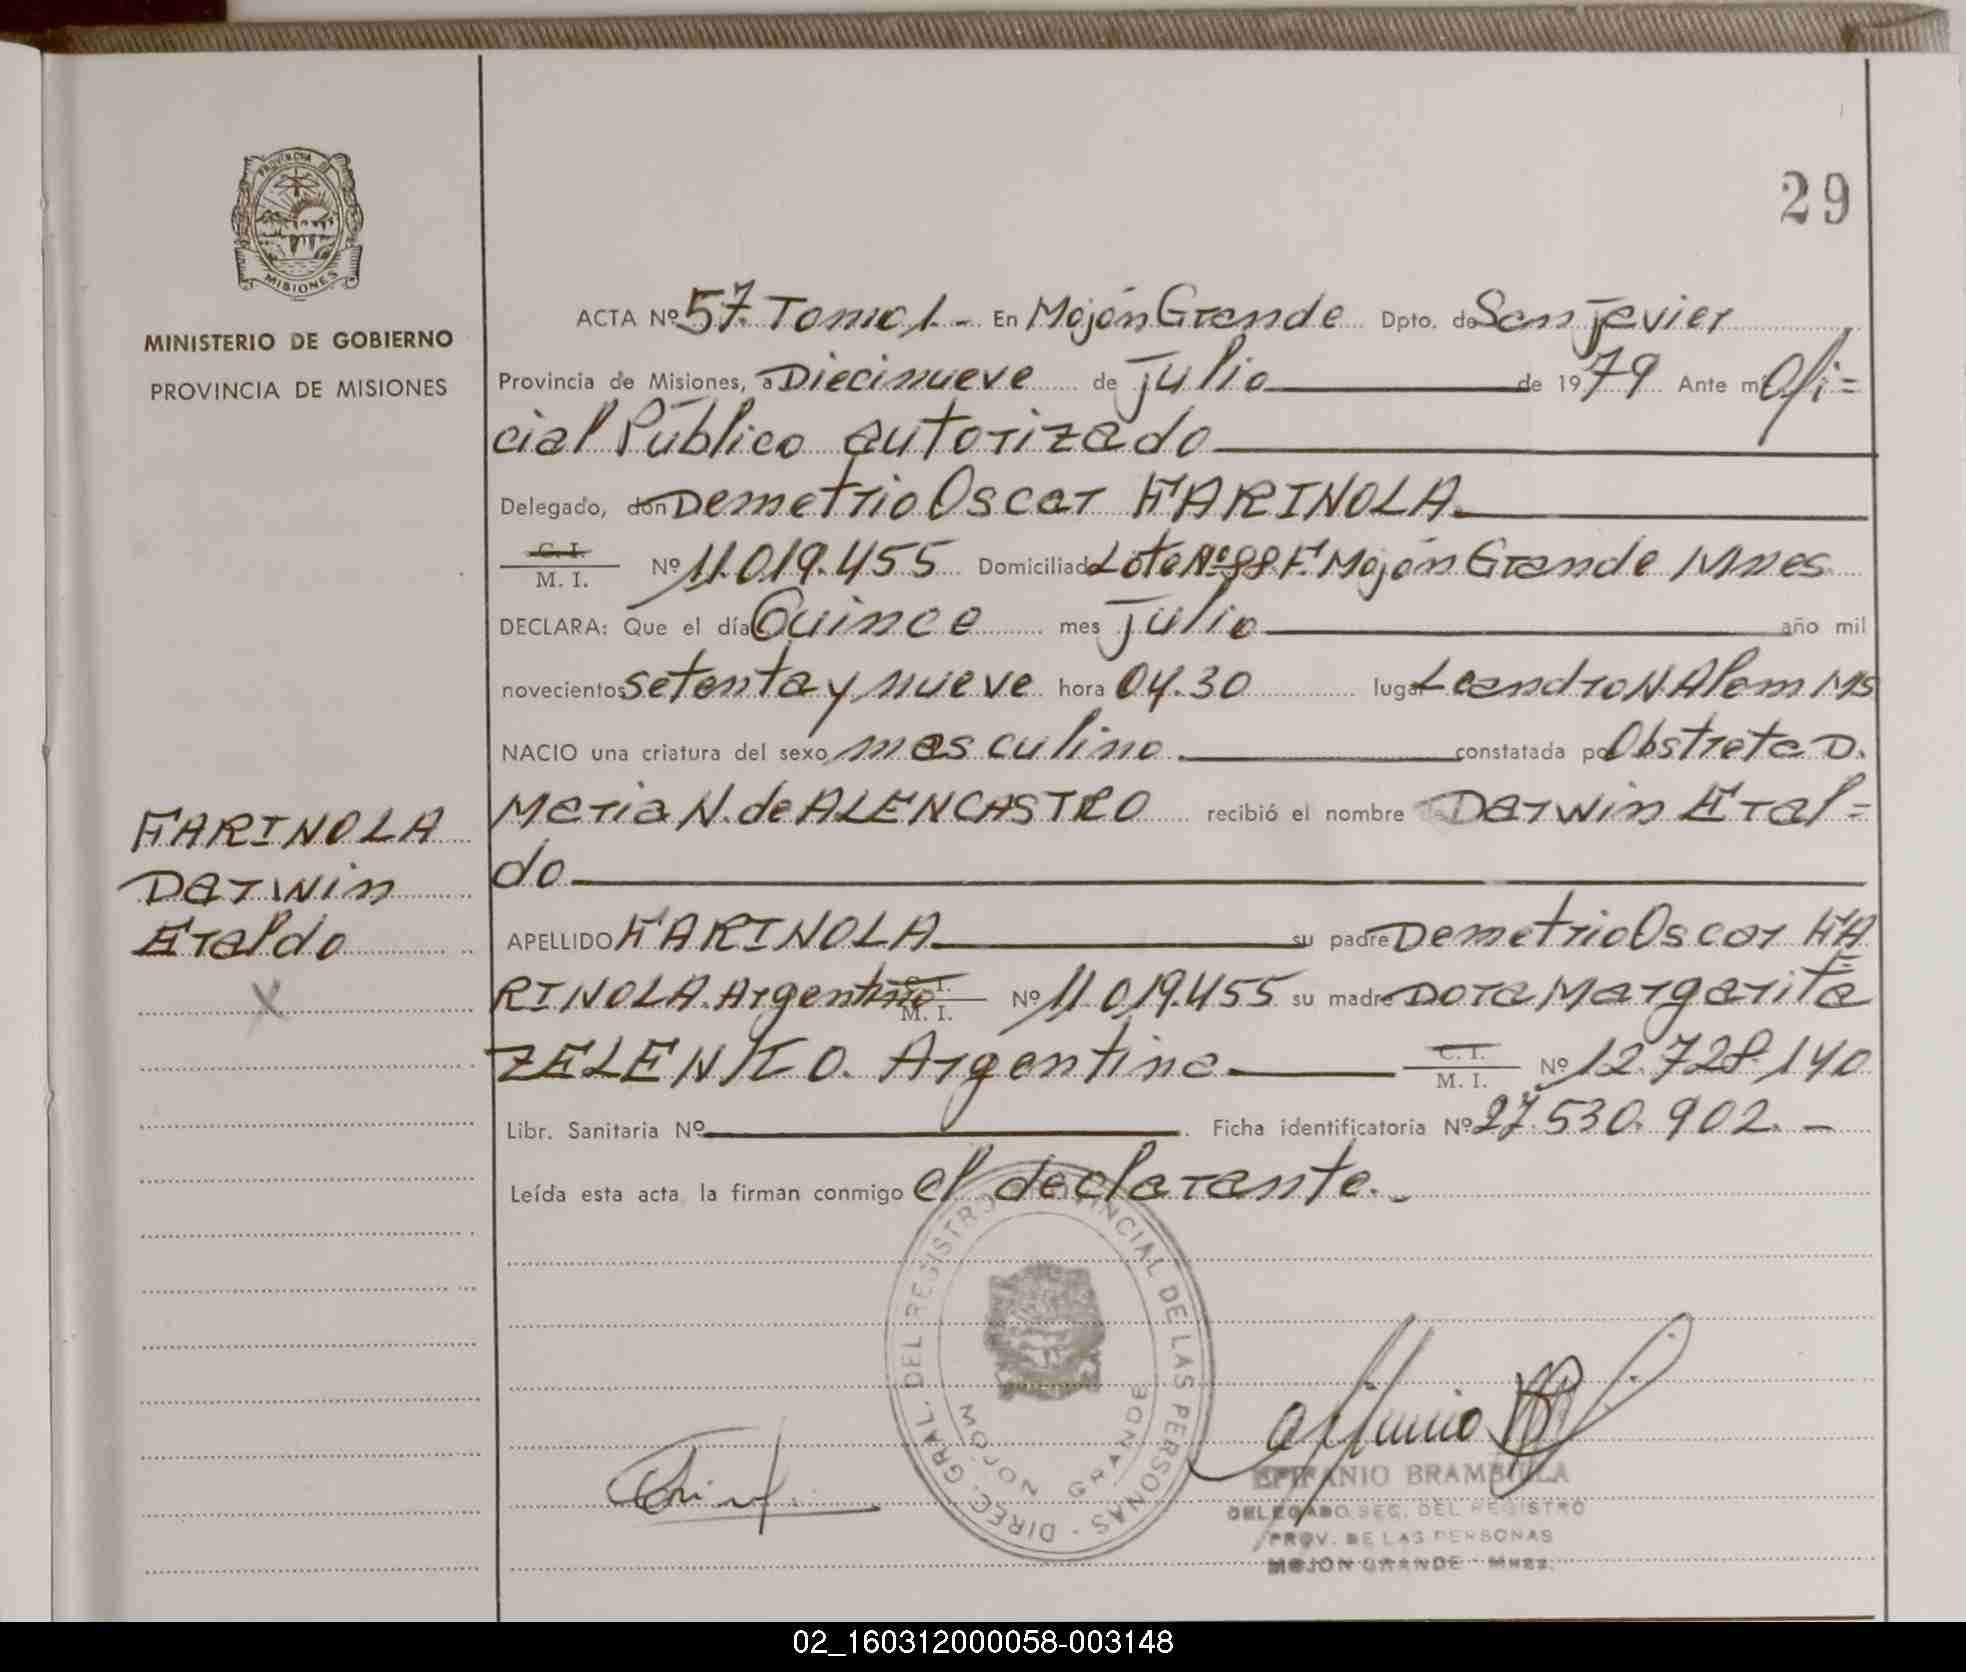 PROVINCIA DE
MISIONES
MINISTERIO DE GOBIERNO
PROVINCIA DE MISIONES
29
ACTA Nº 57. Tomo 1.- En Mojón Grande Dpto. de San Javier
Provincia de Misiones, a Diecinueve de Julio de 1979 Ante mí Ofi=
cial Público autorizado
Delegado, don Demetrio Oscar FARINOLA
C. I.
M. I. Nº 11.019.455 Domiciliado Lote Nº 98 F. Mojón Grande Mnes
DECLARA: Que el día Quince mes Julio año mil
novecientos setenta y nueve hora 04.30 lugar Leandro N. Alem Ms
NACIO una criatura del sexo masculino constatada por Obstreta D.
Maria N. de ALENCASTRO recibió el nombre de Darwin Eral=
do
APELLIDO FARINOLA su padre Demetrio Oscar FA
RINOLA. Argentino C. I. M. I. Nº 11.019.455 su madre Dora Margarita
ZELENKO. Argentina C. I. M. I. Nº 12.728.140
Libr. Sanitaria Nº Ficha identificatoria Nº 27.530.902.-
Leída esta acta la firman conmigo el declarante.-
FARINOLA
Darwin
Eraldo
X
DIREC. GRAL. DEL REGISTRO PROVINCIAL DE LAS PERSONAS -
MOJON GRANDE
EPIFANIO BRAMBILLA
DELEGADO SEC. DEL REGISTRO
PROV. DE LAS PERSONAS
MOJON GRANDE - Mnes.
02_160312000058-003148